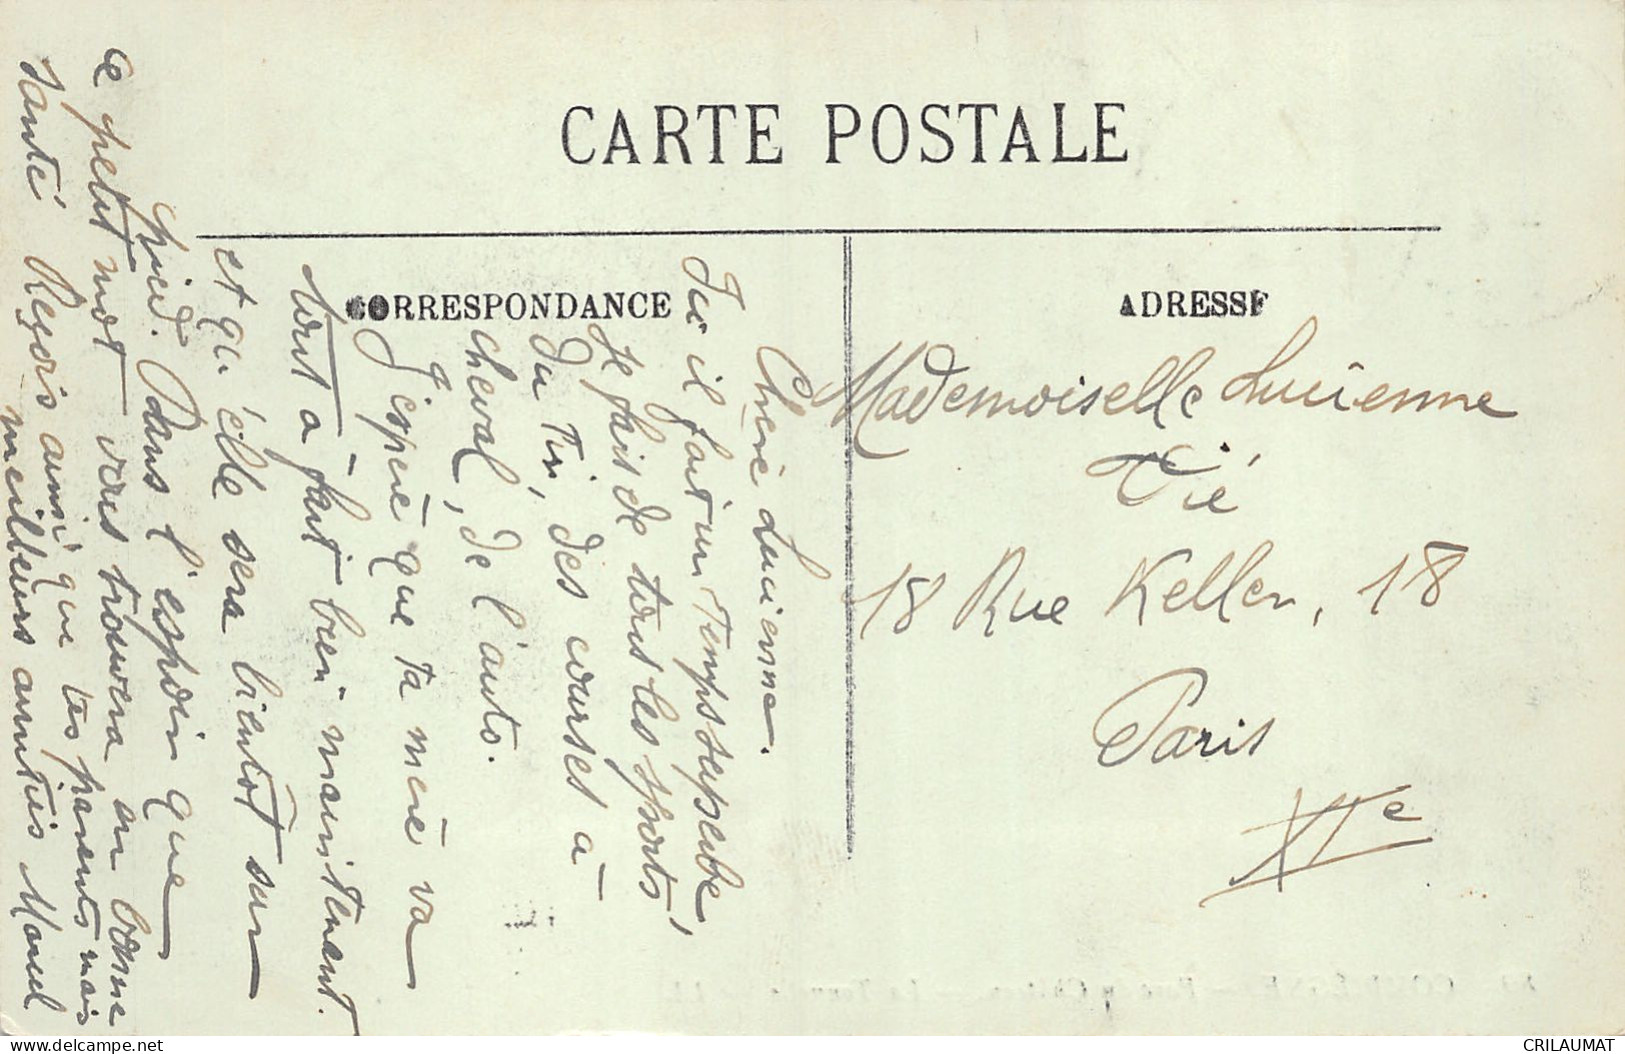 CARTE POSTALE
CORRESPONDANCE
ADRESSE
Chère Lucienne.
Ici il fait un temps superbe,
Je fais de tous les sports
du tir, des courses à
cheval, de l'auto.
J'espère que ta mère va
tout à fait bien maintenant.
et qu'elle sera bientôt sur
pied. Dans l'espoir que
ce petit mot vous trouvera en bonne
santé Reçois ainsi que tes parents mais
meilleurs amitiés Marcel
Mademoiselle Lucienne
Vié
18 Rue Keller, 18
Paris
XIe
delcampe.net
CRILAUMAT